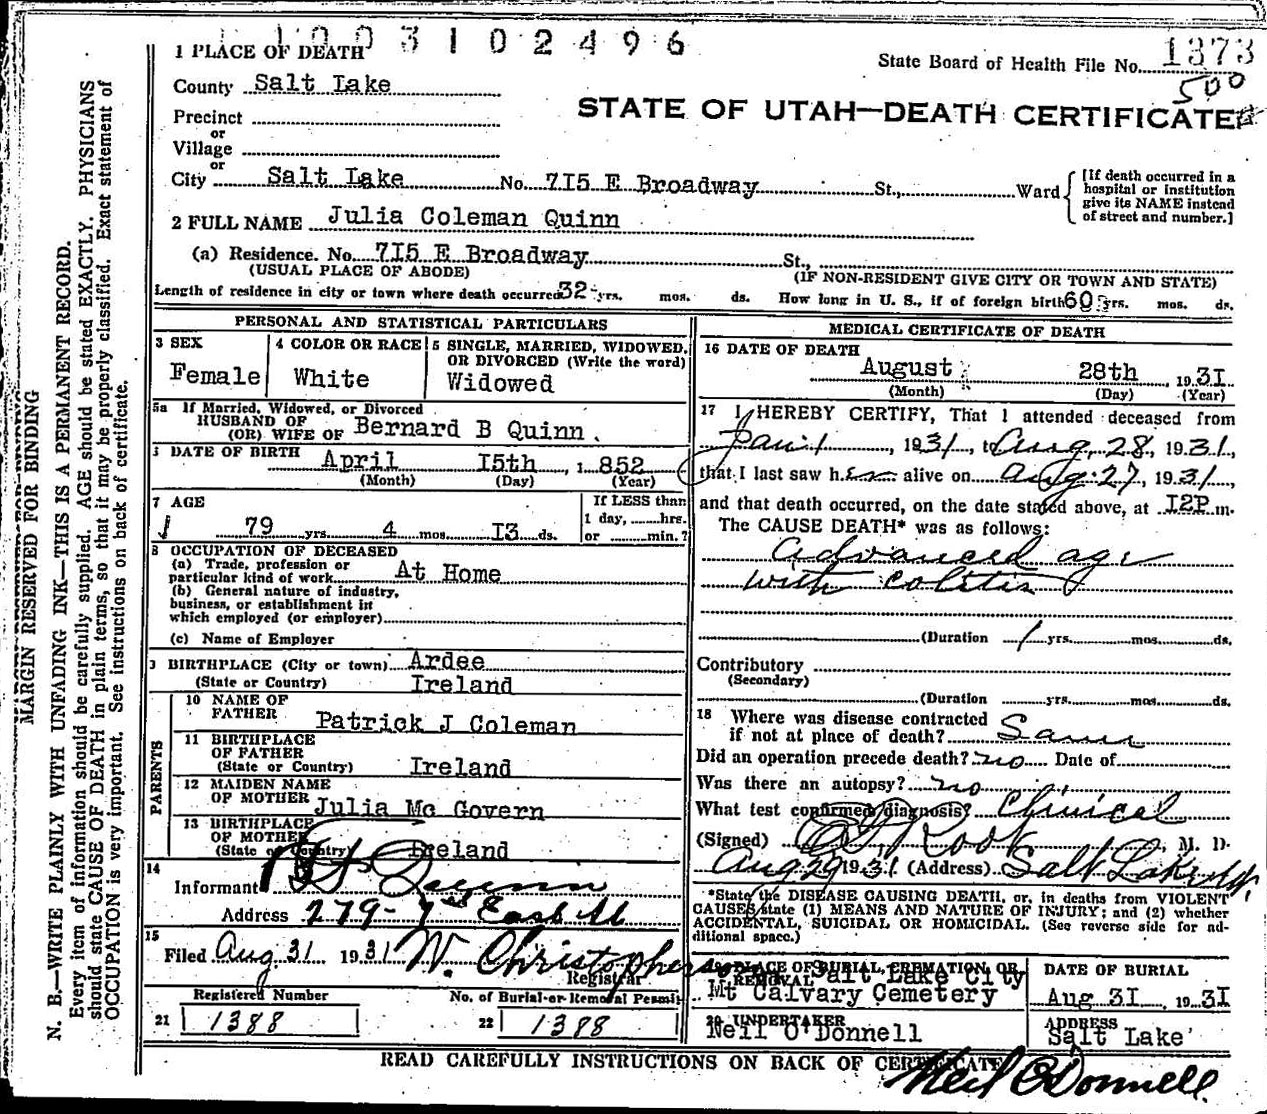 1003102496
1 PLACE OF DEATH
State Board of Health File No. 1373
County Salt Lake
500
STATE OF UTAH—DEATH CERTIFICATE
Precinct
or
Village
or
City Salt Lake No. 7I5 E Broadway St., Ward
[If death occurred in a
hospital or institution
give its NAME instead
of street and number.]
2 FULL NAME Julia Coleman Quinn
(a) Residence. No. 7I5 E Broadway St.,
(USUAL PLACE OF ABODE) (IF NON-RESIDENT GIVE CITY OR TOWN AND STATE)
Length of residence in city or town where death occurred 32 yrs. mos. ds. How long in U. S., if of foreign birth 60 yrs. mos. ds.
MARGIN RESERVED FOR BINDING
N. B.—WRITE PLAINLY WITH UNFADING INK—THIS IS A PERMANENT RECORD.
Every item of information should be carefully supplied. AGE should be stated EXACTLY. PHYSICIANS
should state CAUSE OF DEATH in plain terms, so that it may be properly classified. Exact statement of
OCCUPATION is very important. See instructions on back of certificate.
PERSONAL AND STATISTICAL PARTICULARS
3 SEX
Female
4 COLOR OR RACE
White
5 SINGLE, MARRIED, WIDOWED,
OR DIVORCED (Write the word)
Widowed
5a If Married, Widowed, or Divorced
HUSBAND OF
(OR) WIFE OF Bernard B Quinn.
DATE OF BIRTH April I5th, 1852
(Month) (Day) (Year)
7 AGE
79 yrs. 4 mos. I3 ds.
If LESS than
1 day, hrs.
or min.?
8 OCCUPATION OF DECEASED
(a) Trade, profession or
particular kind of work At Home
(b) General nature of industry,
business, or establishment in
which employed (or employer)
(c) Name of Employer
BIRTHPLACE (City or town) Ardee
(State or Country) Ireland
PARENTS
10 NAME OF
FATHER Patrick J Coleman
11 BIRTHPLACE
OF FATHER
(State or Country) Ireland
12 MAIDEN NAME
OF MOTHER Julia Mc Govern
13 BIRTHPLACE
OF MOTHER
(State or Country) Ireland
14
Informant
Address 279- 7th East
15
Filed Aug 31 1931 W. Christopherson
Registrar
Registered Number
21 1388
No. of Burial or Removal Permit
22 1388
MEDICAL CERTIFICATE OF DEATH
16 DATE OF DEATH
August 28th, 193I
(Month) (Day) (Year)
17 I HEREBY CERTIFY, That I attended deceased from
Jan 1, 1931, to Aug, 28, 1931,
that I last saw her alive on Aug 27, 1931,
and that death occurred, on the date stated above, at I2P m.
The CAUSE DEATH* was as follows:
Advanced age
with colitis
(Duration 1 yrs. mos. ds.
Contributory
(Secondary)
(Duration yrs. mos. ds.
18 Where was disease contracted
if not at place of death? Same
Did an operation precede death? no Date of
Was there an autopsy? no
What test confirmed diagnosis? Clinical
(Signed) Root, M. D.
Aug 29 1931 (Address) Salt Lake
*State the DISEASE CAUSING DEATH, or, in deaths from VIOLENT
CAUSES, state (1) MEANS AND NATURE OF INJURY; and (2) whether
ACCIDENTAL, SUICIDAL OR HOMICIDAL. (See reverse side for ad-
ditional space.)
19 PLACE OF BURIAL, CREMATION, OR
REMOVAL Salt Lake City
Mt Calvary Cemetery
DATE OF BURIAL
Aug 3I, 193I
20 UNDERTAKER
Neil O'Donnell
ADDRESS
Salt Lake
READ CAREFULLY INSTRUCTIONS ON BACK OF CERTIFICATE
Neil O'Donnell.